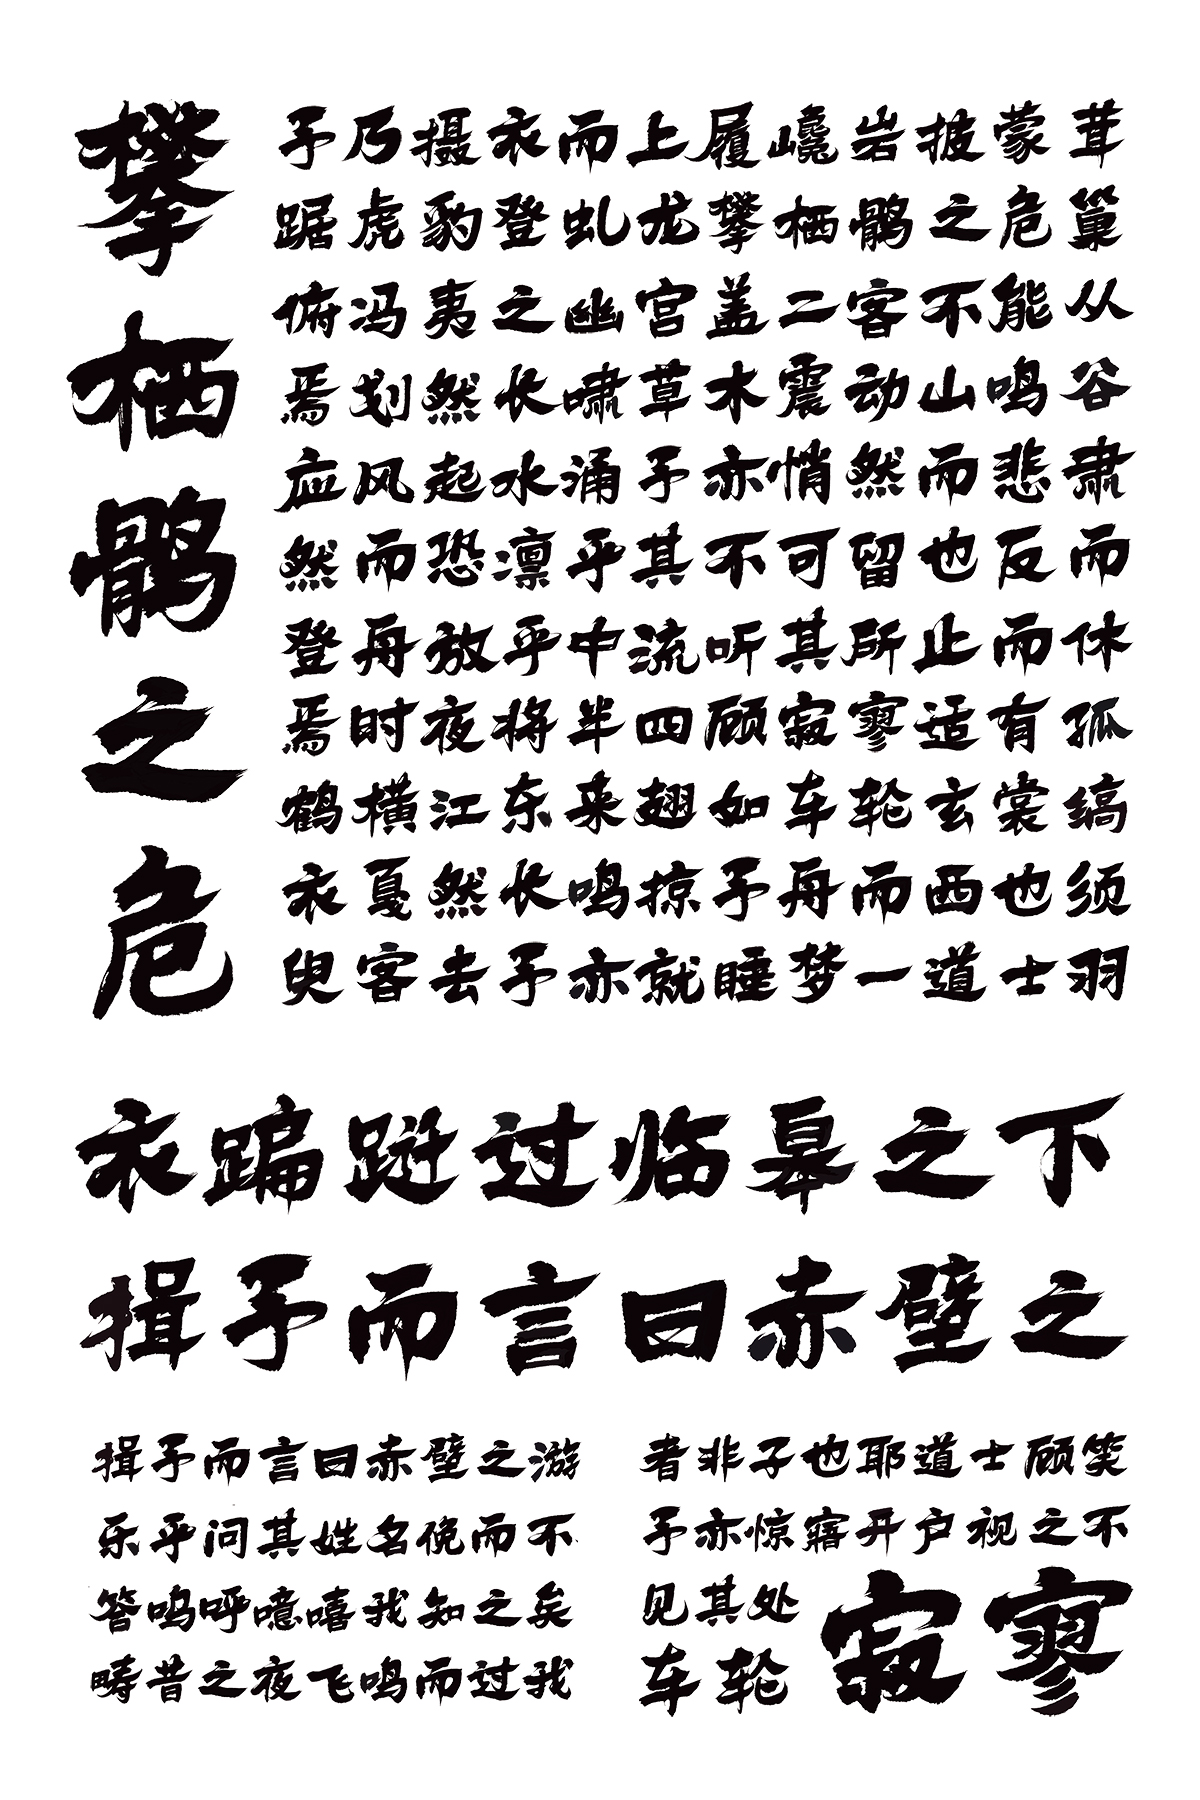 攀栖鹘之危
予乃摄衣而上履巉岩披蒙茸
踞虎豹登虬龙攀栖鹘之危巢
俯冯夷之幽宫盖二客不能从
焉划然长啸草木震动山鸣谷
应风起水涌予亦悄然而悲肃
然而恐凛乎其不可留也反而
登舟放乎中流听其所止而休
焉时夜将半四顾寂寥适有孤
鹤横江东来翅如车轮玄裳缟
衣戛然长鸣掠予舟而西也须
臾客去予亦就睡梦一道士羽
衣蹁跹过临皋之下
揖予而言曰赤壁之
揖予而言曰赤壁之游
乐乎问其姓名俛而不
答呜呼噫嘻我知之矣
畴昔之夜飞鸣而过我
者非子也耶道士顾笑
予亦惊寤开户视之不
见其处
车轮
寂寥